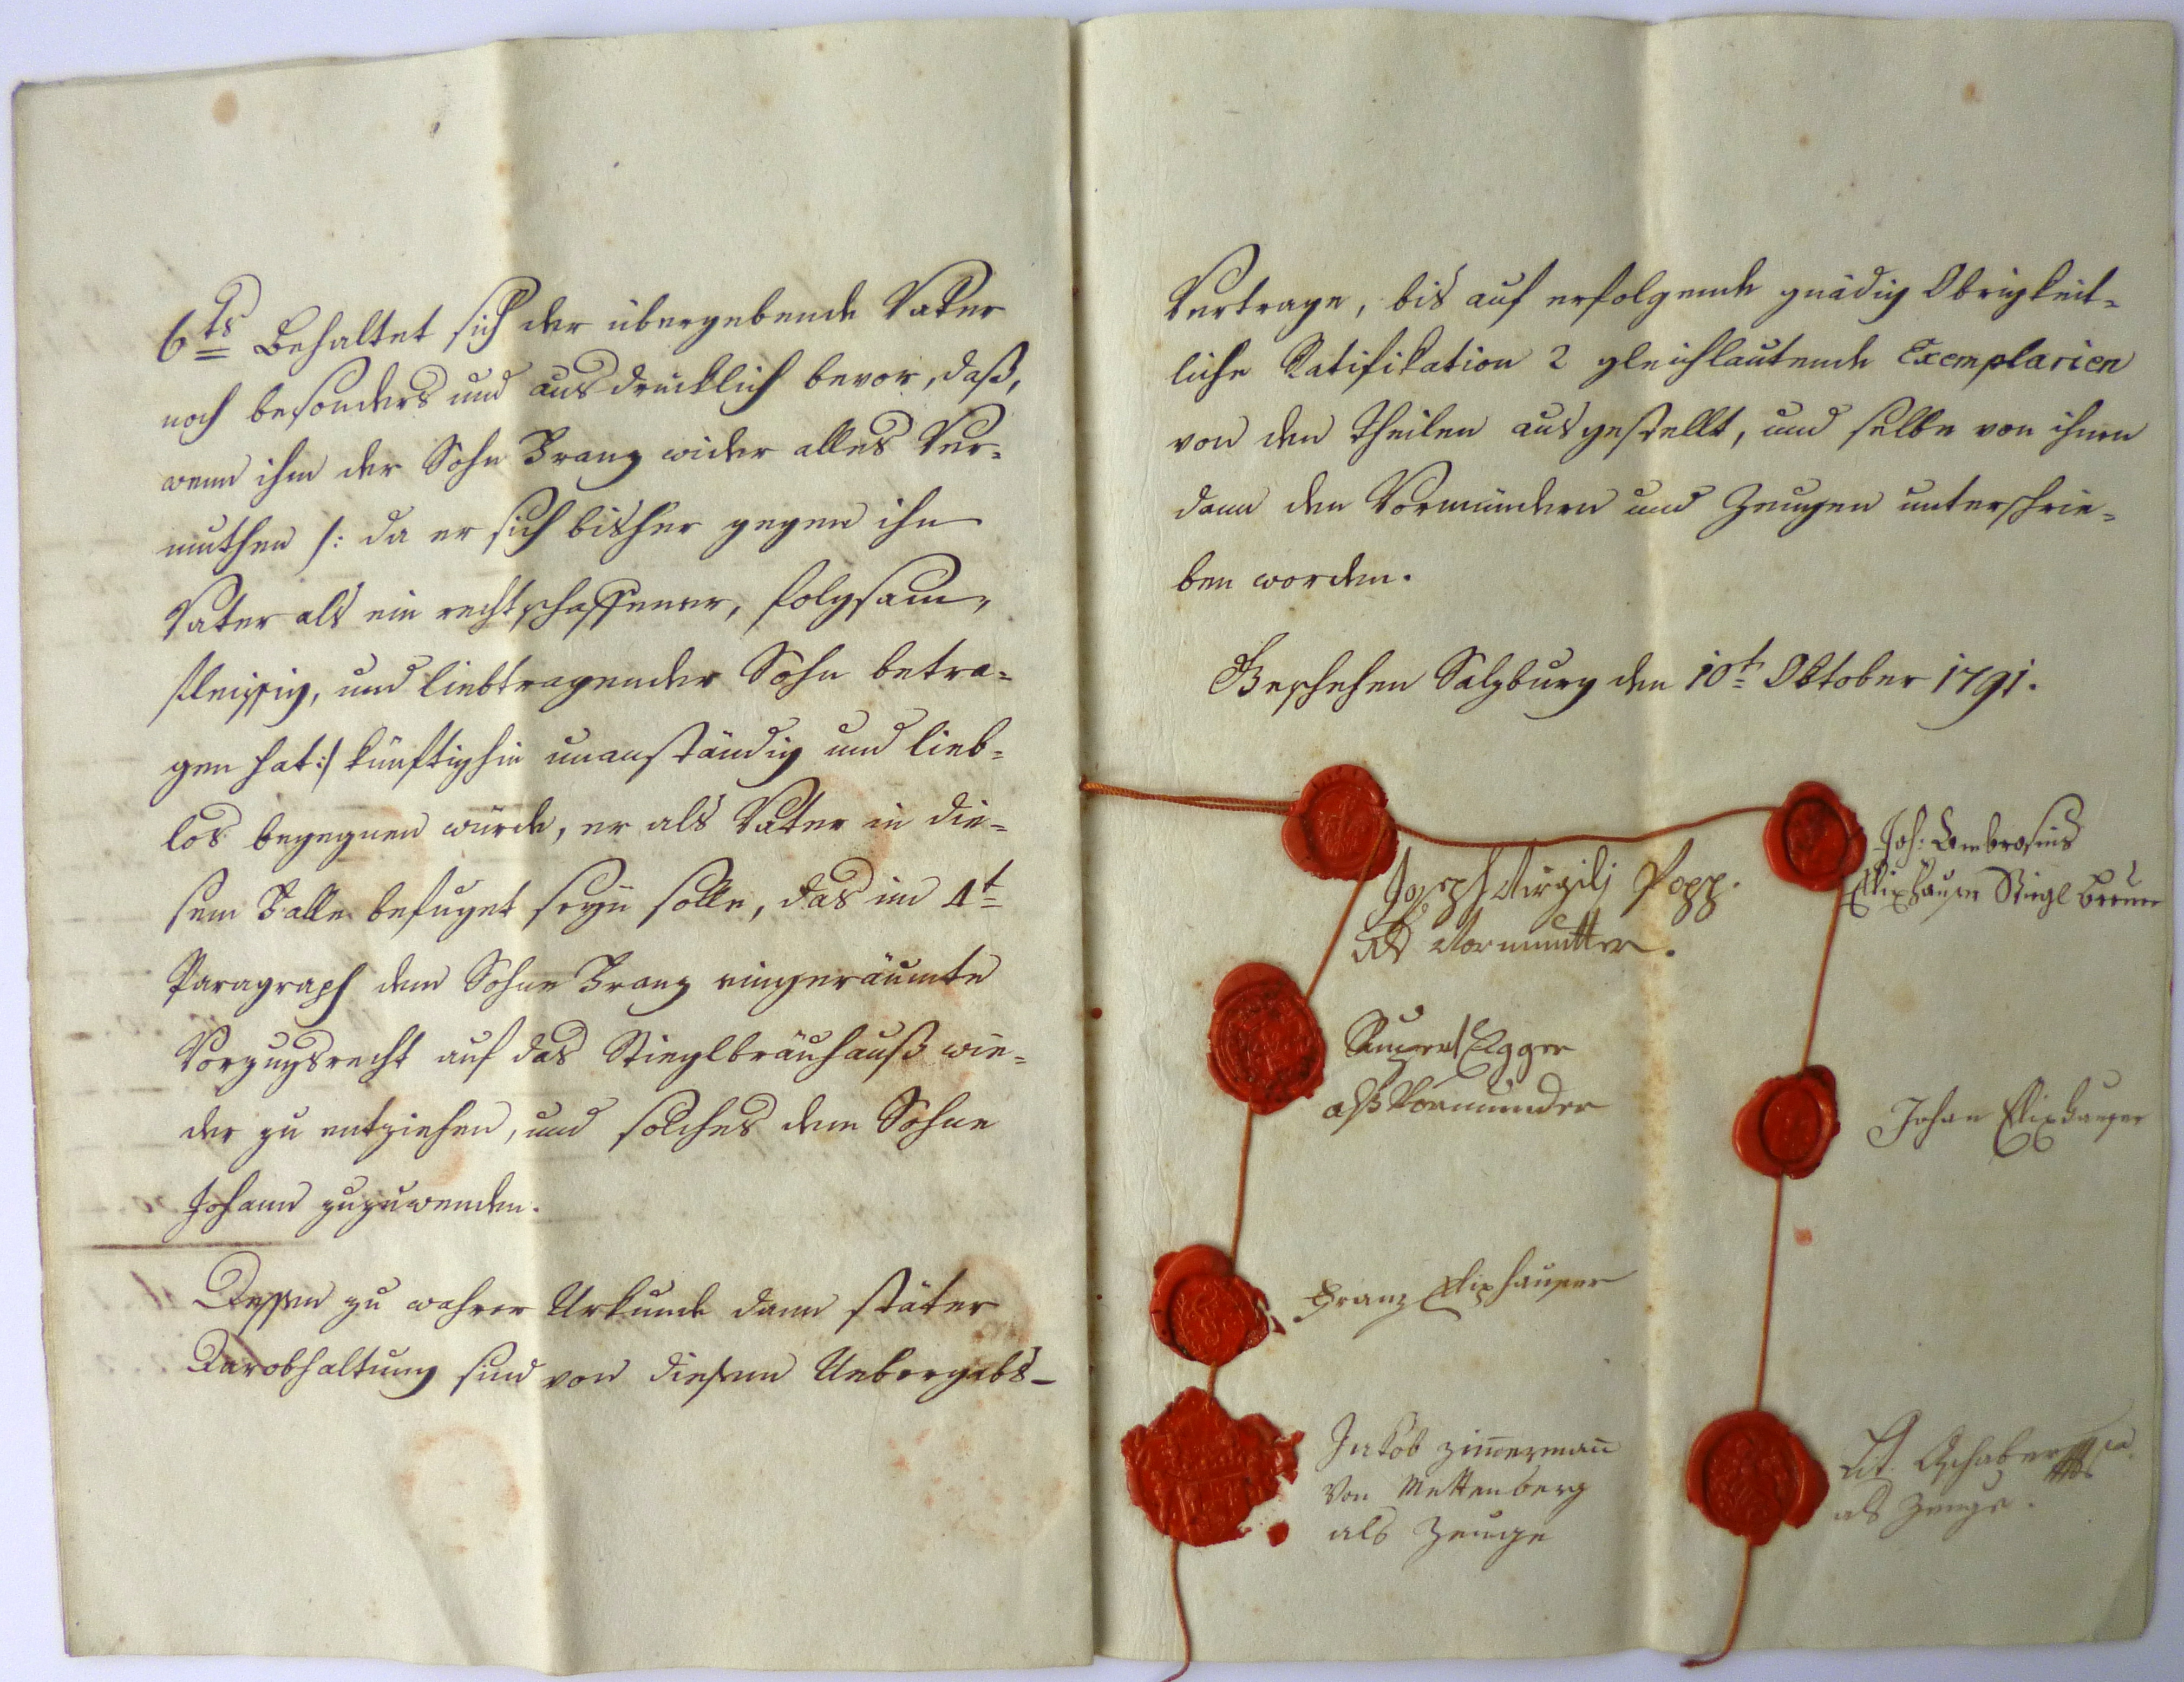 6ts Behaltet sich der übergebende Vater
noch besonders und ausdrücklich bevor, daß,
wenn ihm der Sohn Franz wider alles Ver=
muthen /: da er sich bisher gegen ihn
Vater als ein rechtschaffener, folgsam,
fleissig, und liebtragender Sohn betra=
gen hat :/ künftighin unanständig und lieb=
los begegnen würde, er als Vater in die=
sem Falle befuget seyn solle, das im 4t
Paragraph dem Sohne Franz eingeräumte
Vorzugsrecht auf das Stieglbräuhauß wie=
der zu entziehen, und solches dem Sohne
Johann zuzuwenden.
Dessen zu wahrer Urkunde dann stäter
Darobhaltung sind von diesem Uebergabs-
Vertrage, bis auf erfolgende gnädig Obrigkeit=
liche Ratifikation 2 gleichlautende Exemplarien
von den Theilen ausgestellt, und selbe von ihnen
dann den Vormündern und Zeugen unterschrie=
ben worden.
Geschehen Salzburg den 10t Oktober 1791.
Joseph Virgilj Popp.
als Vormutter.
Joh: Ambrosius
Elixhauser Stiegl Breuer
Egger
alß Vormunder
Johan Elixhauser
Franz Elixhauser
Jakob Zimermañ
Von Mettenberg
als Zeuge
als Zeuge.